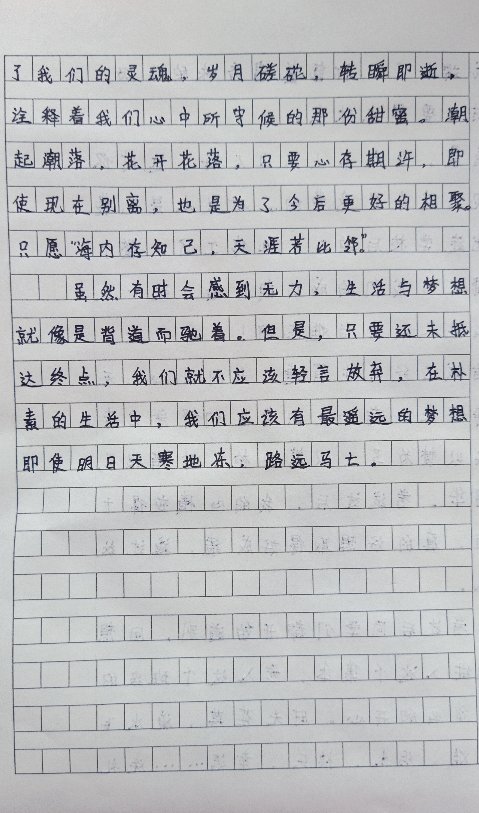 了我们的灵魂，岁月磋砣，转瞬即逝，
注释着我们心中所守候的那份甜蜜。潮
起潮落，花开花落，只要心存期许，即
使现在别离，也是为了今后更好的相聚。
只愿“海内存知己，天涯若比邻。”
虽然有时会感到无力，生活与梦想
就像是背道而驰着。但是，只要还未抵
达终点，我们就不应该轻言放弃，在朴
素的生活中，我们应该有最遥远的梦想
即使明日天寒地冻，路远马亡。